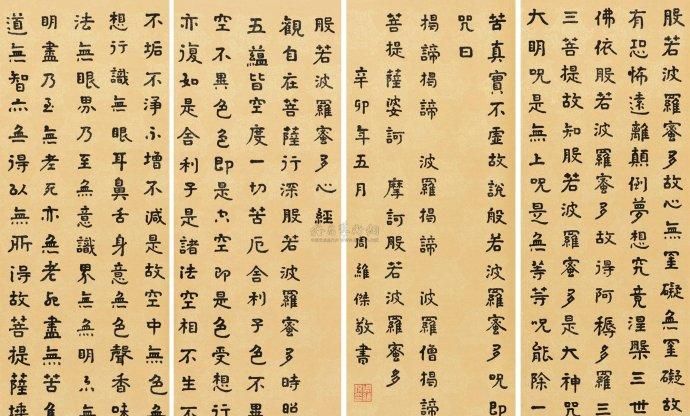 般若波羅蜜多心經
觀自在菩薩行深般若波羅蜜多時照
五蘊皆空度一切苦厄舍利子色不異
空不異色色即是空空即是色受想行
亦復如是舍利子是諸法空相不生不
不垢不淨不增不減是故空中無色
想行識無眼耳鼻舌身意無色聲香味
法無眼界乃至無意識界無無明亦無
明盡乃至無老死亦無老死盡無苦集
道無智亦無得以無所得故菩提薩埵
般若波羅蜜多故心無罣礙無罣礙故
有恐怖遠離顛倒夢想究竟涅槃三世
佛依般若波羅蜜多故得阿耨多羅三
三菩提故知般若波羅蜜多是大神咒
大明咒是無上咒是無等等咒能除一
苦真實不虛故說般若波羅蜜多咒即
咒曰
揭諦揭諦 波羅揭諦 波羅僧揭諦
菩提薩婆訶 摩訶般若波羅蜜多
辛卯年五月 周維傑敬書